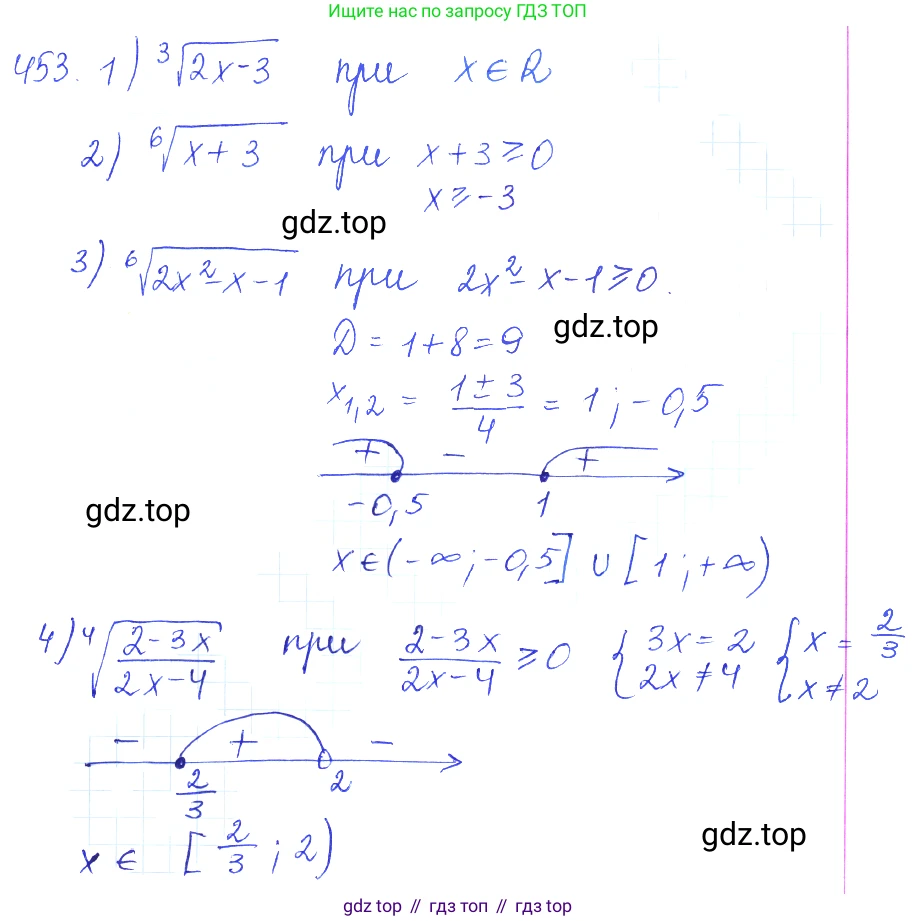 Ищите нас по запросу ГДЗ ТОП
453. 1) ∛(2x-3) при x ∈ R
2) ⁶√(x+3) при x+3 ≥ 0
x ≥ -3
gdz.top
3) ⁶√(2x²-x-1) при 2x²-x-1 ≥ 0.
gdz.top
D = 1+8 = 9
x₁,₂ = (1±3)/4 = 1; -0,5
+ - +
-0,5 1
gdz.top
x ∈ (-∞; -0,5] ∪ [1; +∞)
4) ⁴√((2-3x)/(2x-4)) при (2-3x)/(2x-4) ≥ 0 { 3x = 2 { x = 2/3
2x ≠ 4 x ≠ 2
- + -
2/3 2
gdz.top
x ∈ [2/3; 2)
gdz top // гдз топ // gdz.top